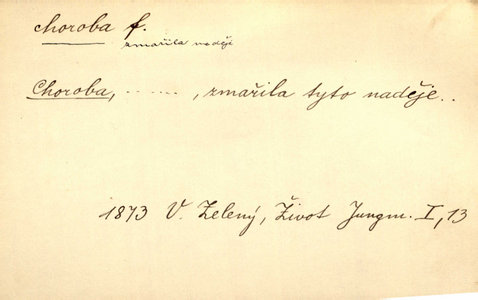 choroba f.
zmařila naděje
Choroba, ......, zmařila tyto naděje..
1873 V. Zelený, Život Jungm. I, 13